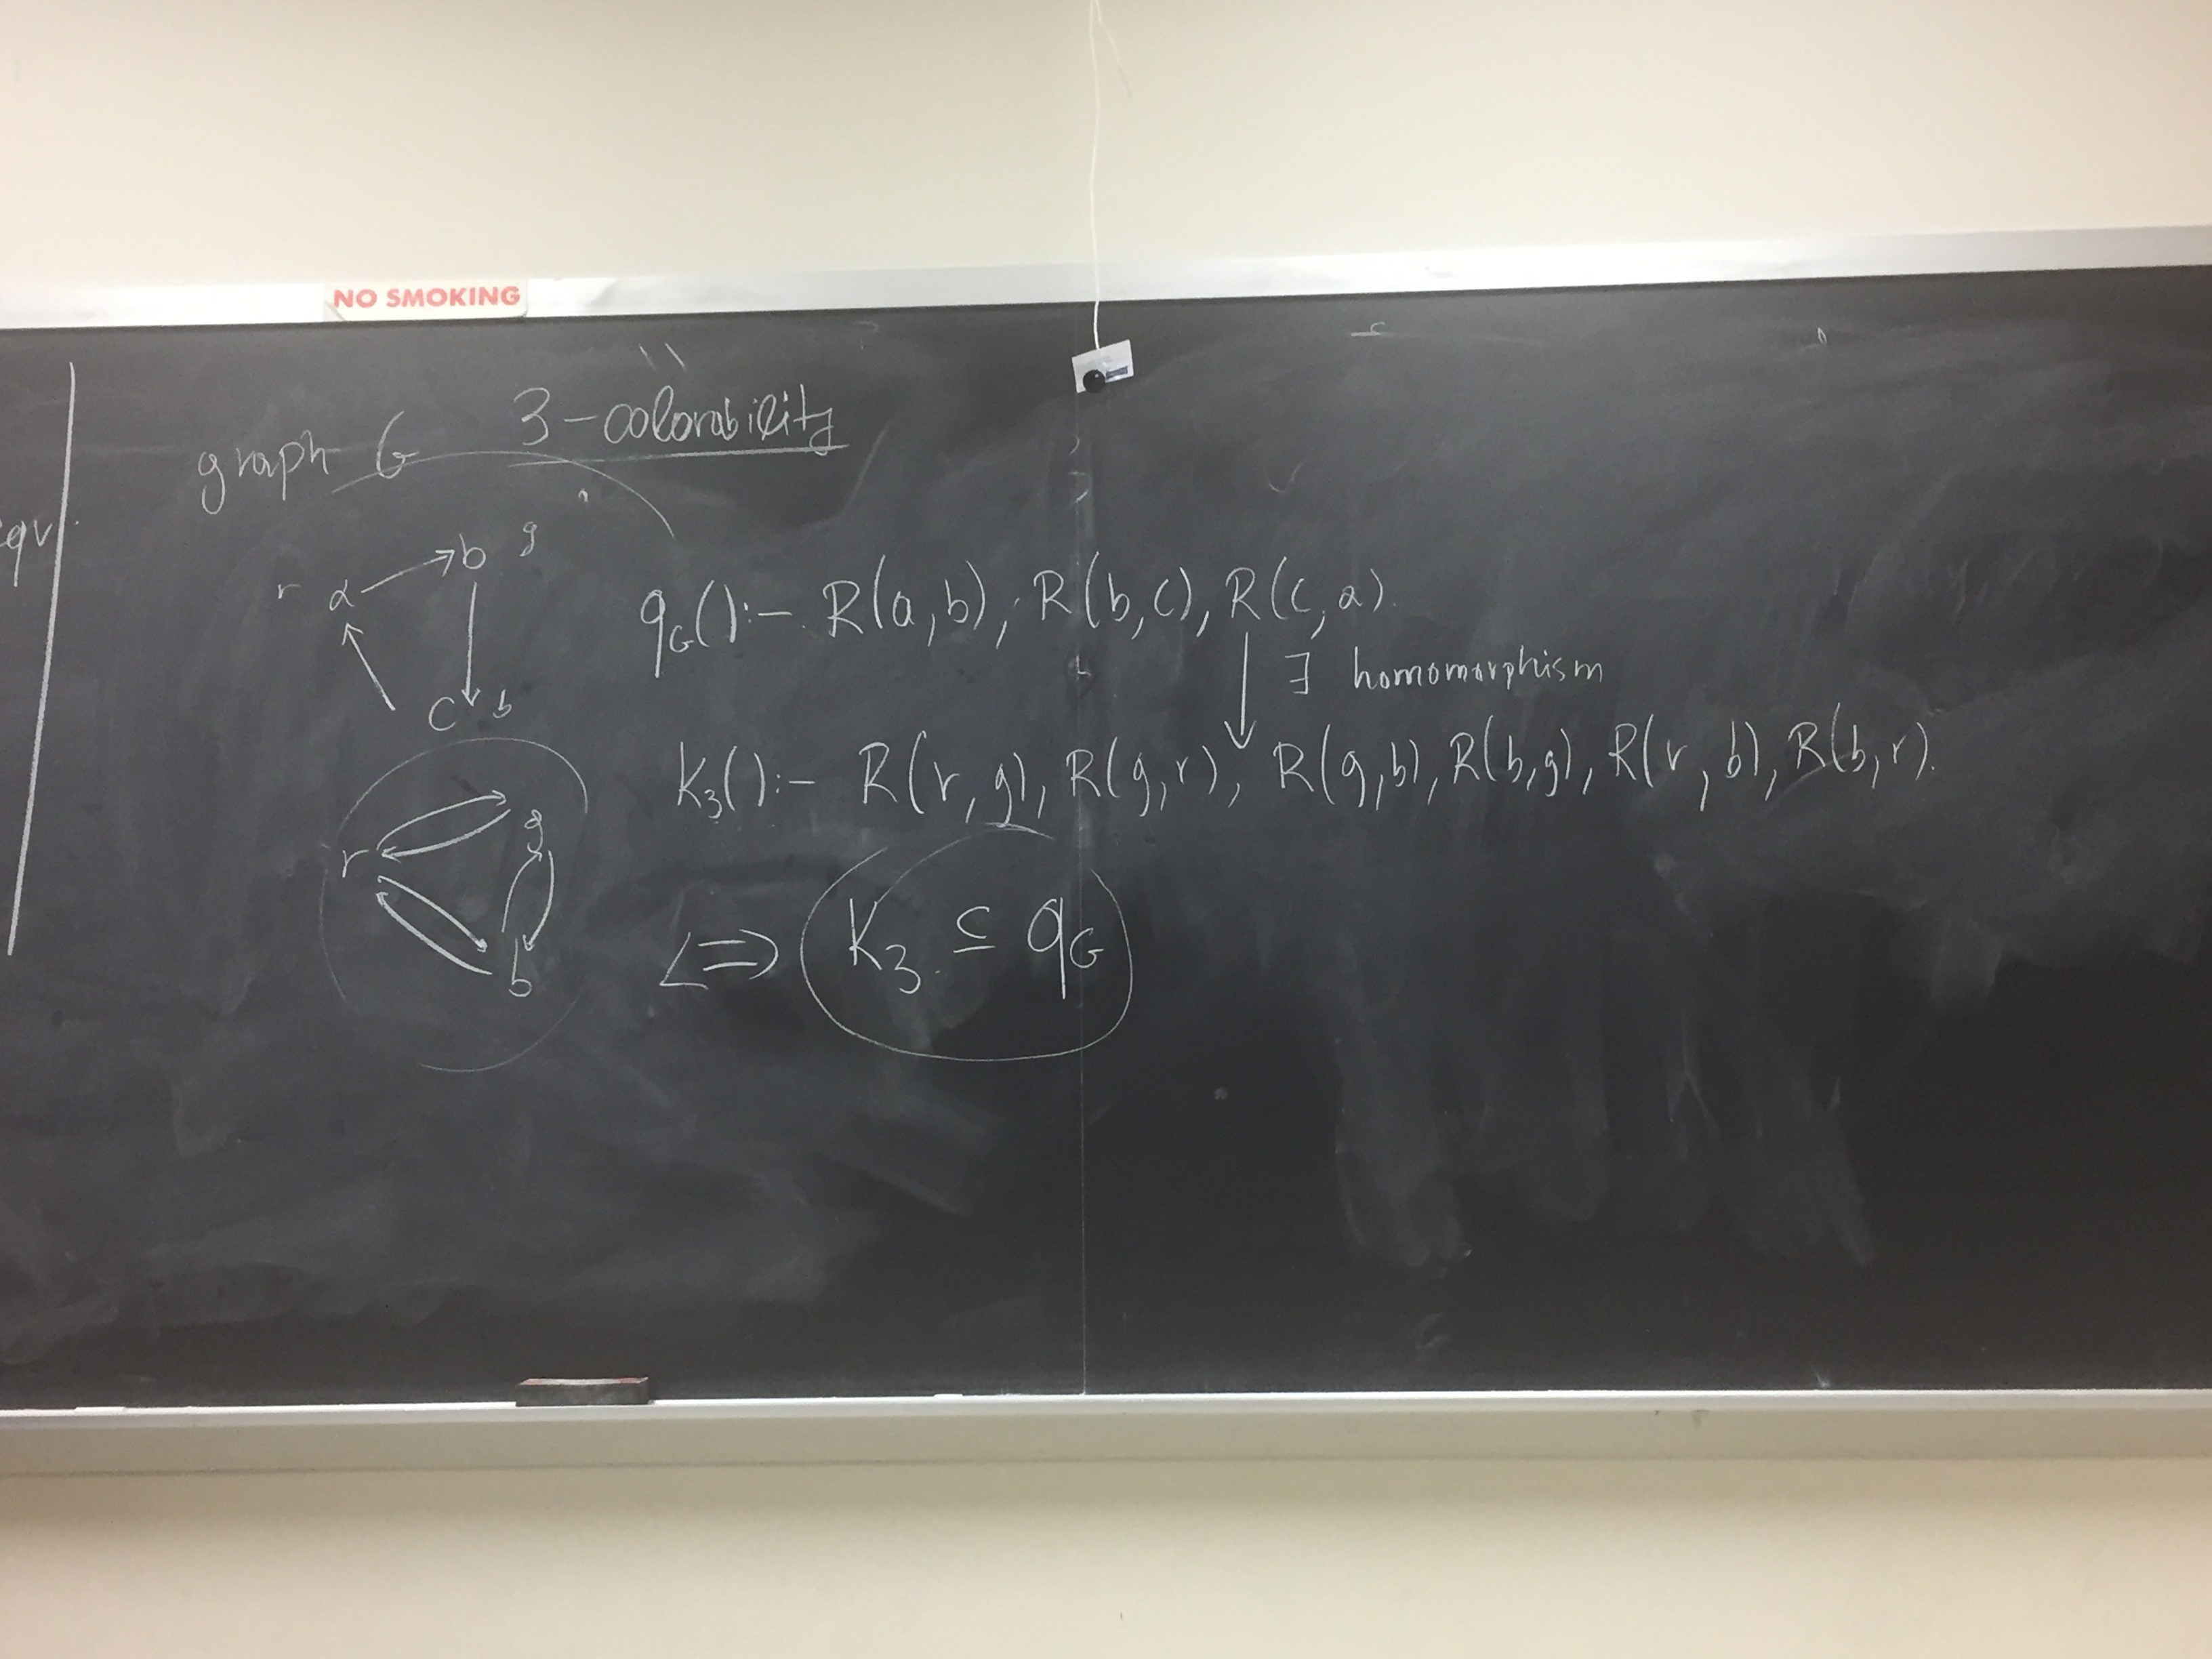 NO SMOKING
graph G 3-colorability
eqv.
r a → b g
c b
q_G() :- R(a,b), R(b,c), R(c,a).
∃ homomorphism
K_3() :- R(r,g), R(g,r), R(g,b), R(b,g), R(r,b), R(b,r).
r g
b
<=> K_3 ⊆ q_G